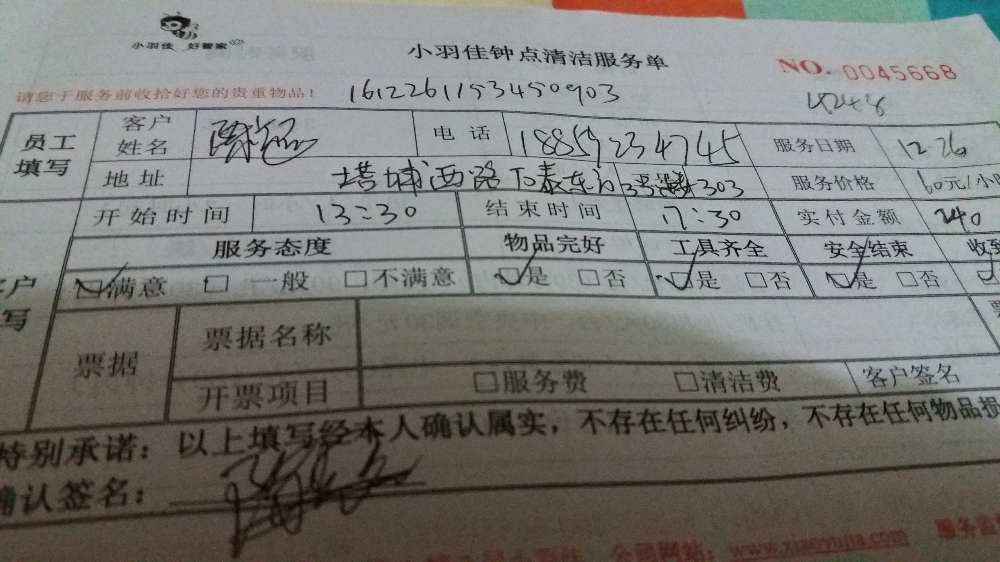 小羽佳 好管家
小羽佳钟点清洁服务单
NO. 0045668
请您于服务前收拾好您的贵重物品！ 1612261153450903
4248
员工填写 客户姓名 电话 18859234745 服务日期 12.26
地址 塔埔西路 303 服务价格 60元/小时
开始时间 13:30 结束时间 17:30 实付金额 240
服务态度 物品完好 工具齐全 安全结束 收到
满意 □ 一般 □不满意 是 □否 是 □否 是 □否
票据 票据名称
开票项目 □服务费 □清洁费 客户签名
特别承诺：以上填写经本人确认属实，不存在任何纠纷，不存在任何物品损
确认签名：
公司网站：www.xiaoyujia.com 服务监